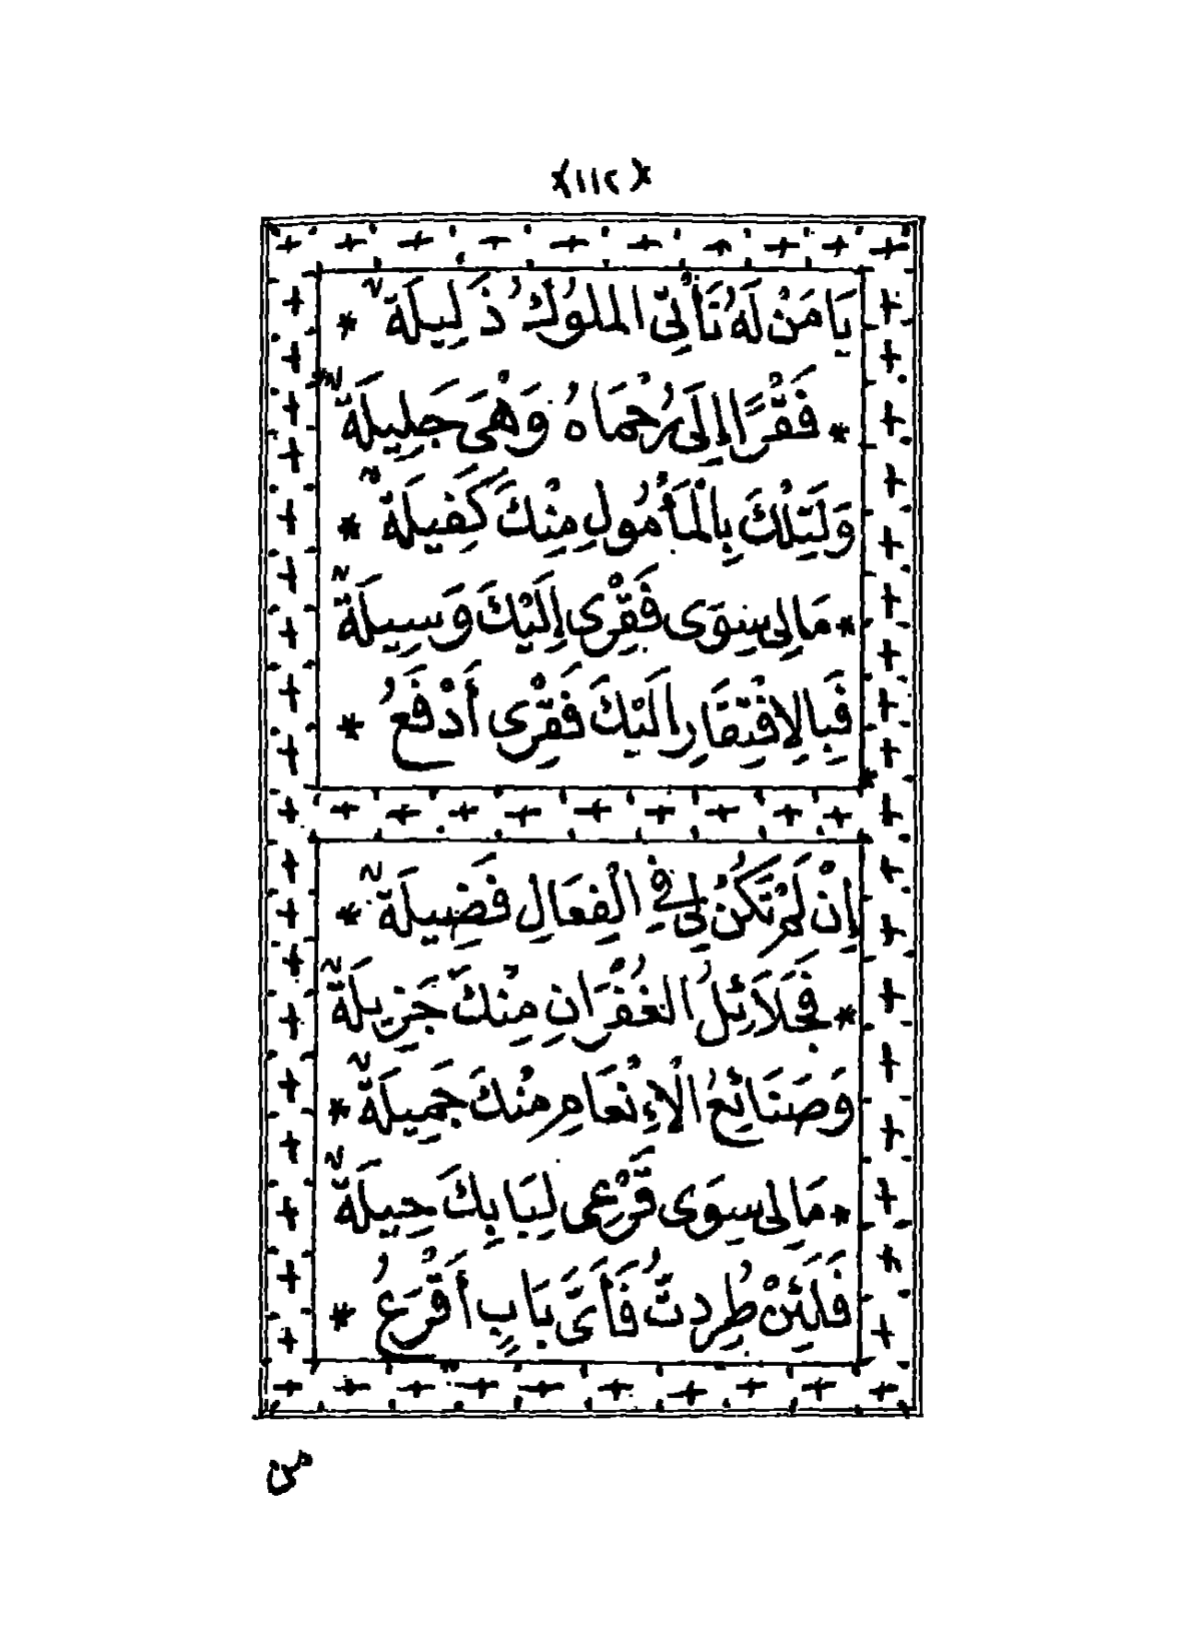 ﴿١١٢﴾
يَا مَنْ لَهُ تَأْتِى الْمُلُوكُ ذَلِيلَةً *
* فَقْرًا إِلَى رُحْمَاهُ وَهْىَ جَلِيلَةٌ
وَلَتِلْكَ بِالْمَأْمُولِ مِنْكَ كَفِيلَةٌ *
* مَالِى سِوَى فَقْرِى إِلَيْكَ وَسِيلَةٌ
فَبِالِافْتِقَارِ اِلَيْكَ فَقْرِى أَدْفَعُ *
إِنْ لَمْ تَكُنْ لِى فِي الْفِعَالِ فَضِيلَةٌ *
* فَجَلَائِلُ الْغُفْرَانِ مِنْكَ جَزِيلَةٌ
وَصَنَائِعُ الْإِنْعَامِ مِنْكَ جَمِيلَةٌ *
* مَالِى سِوَى قَرْعِى لِبَابِكَ حِيلَةٌ
فَلَئِنْ طُرِدتُّ فَأَىَّ بَابٍ أَقْرَعُ *
من